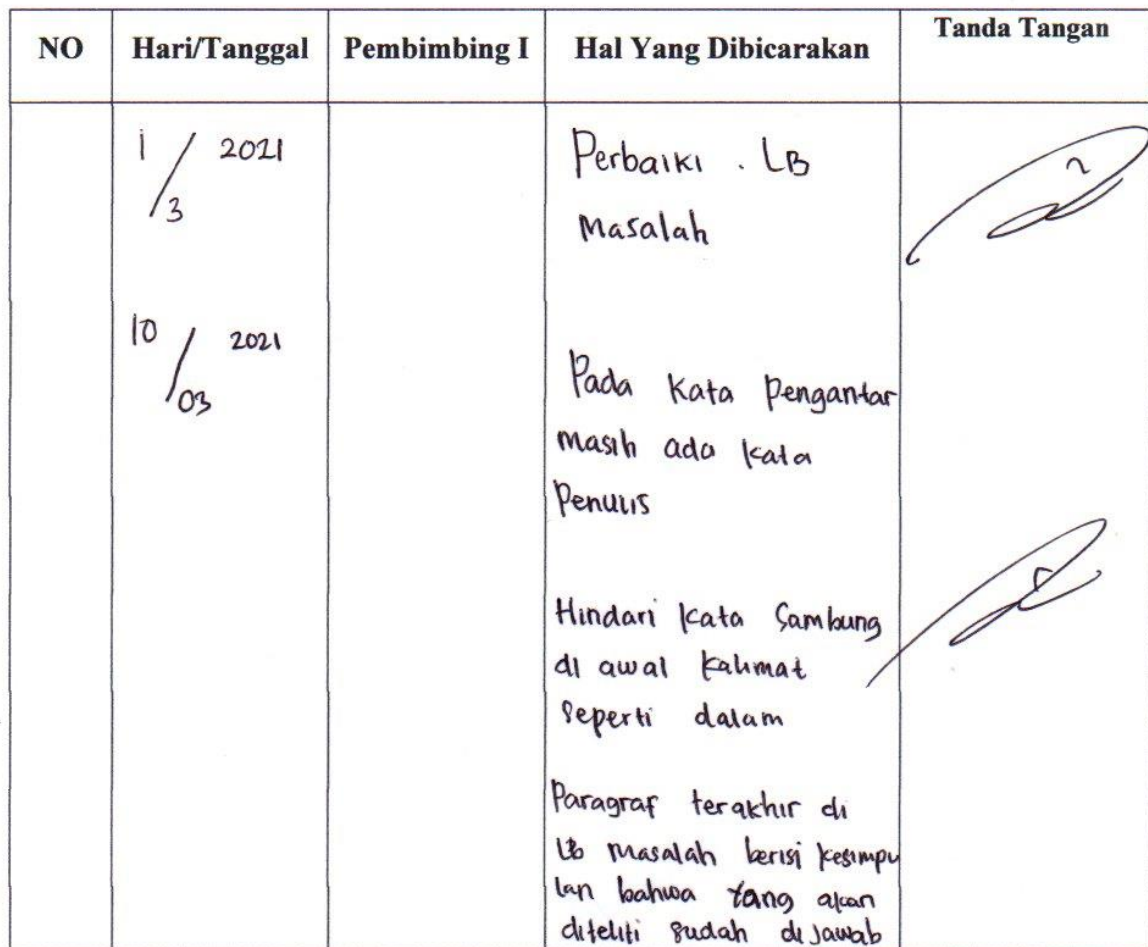 NO Hari/Tanggal Pembimbing I Hal Yang Dibicarakan Tanda Tangan
1/3 2021 Perbaiki . LB
Masalah
10/03 2021
Pada Kata Pengantar
masih ada kata
Penulis
Hindari kata Sambung
di awal kalimat
seperti dalam
Paragraf terakhir di
LB masalah berisi kesimpu
lan bahwa yang akan
diteliti sudah di jawab